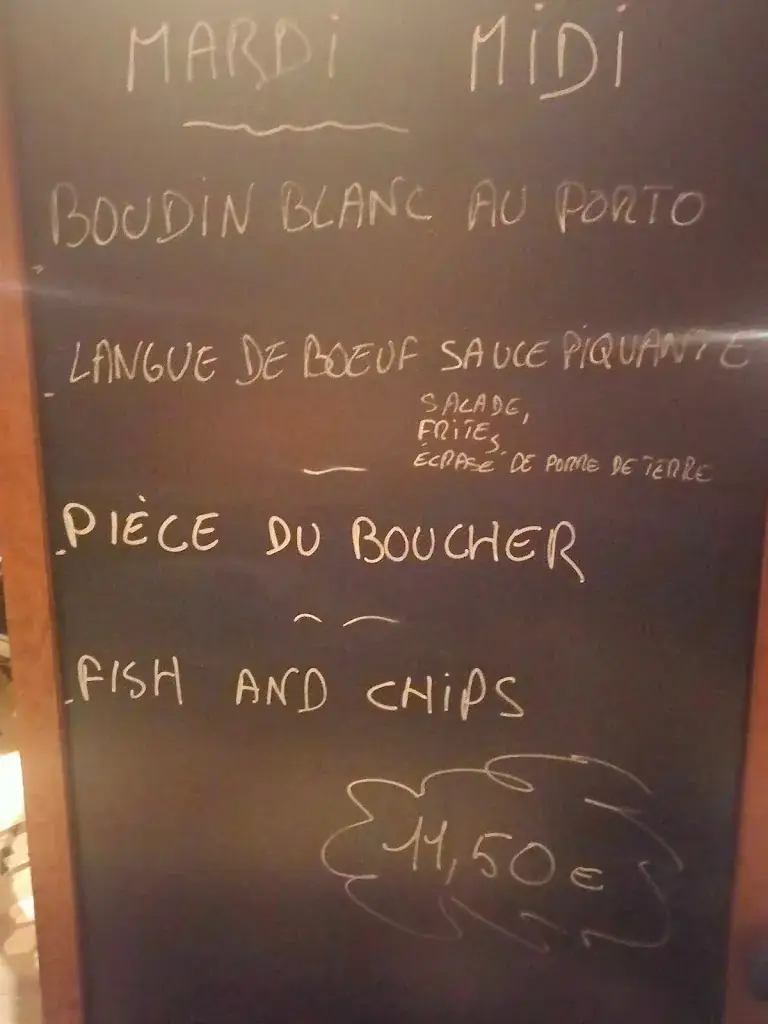 MARDI MIDI
BOUDIN BLANC AU PORTO
LANGUE DE BOEUF SAUCE PIQUANTE
SALADE,
FRITES,
ÉCRASÉ DE POMME DE TERRE
PIÈCE DU BOUCHER
FISH AND CHIPS
11,50€